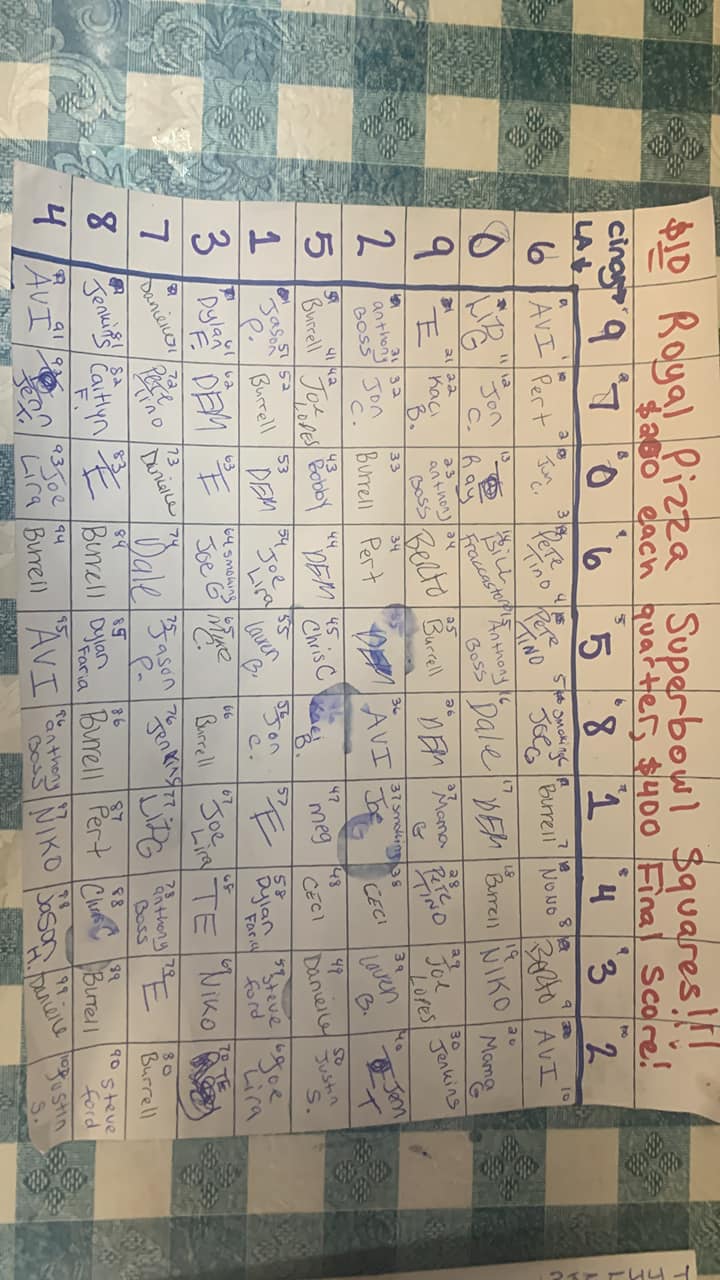 $10 Royal Pizza Superbowl Squares!!!!
$200 each quarter, $400 Final Score!
Cincy→ 9 7 0 6 5 8 1 4 3 2
LA↓
6 AVI 1 Pert 2 Jon C. 3 PETE TINO 4 PETE TINO 5 Smoking JOEG Burrell 7 NONO 8 BERTO 9 AVI 10
0 LIZ G 11 Jon C. 12 Ray 13 Bill Fraccastoro Anthony Boss 16 Dale 17 DEM 18 Burrell 19 NIKO 20 Mama G
9 E 21 Kaci B. 22 anthony Boss 23 Berto 24 Burrell 25 DEM 26 Mama G 27 PETE TINO 28 Joe Lopes 29 Jenkins 30
2 anthony Boss 31 Jon C. 32 Burrell 33 Pert 34 DEM AVI 36 Smoking Joe G 37 CECI 38 Lauren B. 39 Jen T 40
5 Burrell 41 Joe Lopes 42 Bobby 43 DEM 44 Chris C 45 Kaci B. Meg 47 CECI 48 Danielle 49 Justin S. 50
1 Jason P. 51 Burrell 52 DEM 53 Joe Lira 54 Lauren B. 55 Jon C. 56 E 57 Dylan Faria 58 Steve Ford 59 Joe Lira 60
3 Dylan F. 61 DEM 62 E 63 Smoking Joe G 64 65 Burrell 66 Joe Lira 67 TE 68 NIKO 69 TE 70
7 Danielle 71 PETE TINO 72 Danielle 73 Dale 74 Jason P. 75 Jenkins 76 LIZ G 77 anthony Boss 78 E 79 Burrell 80
8 Jenkins 81 Caitlyn F. 82 E 83 Burrell 84 Dylan Faria 85 Burrell 86 Pert 87 Chris C 88 Burrell 89 Steve Ford 90
4 AVI 91 Jenn T. 92 Joe Lira 93 Burrell 94 AVI 95 anthony Boss 96 NIKO 97 Jason H. 98 Danielle 99 Justin S. 100